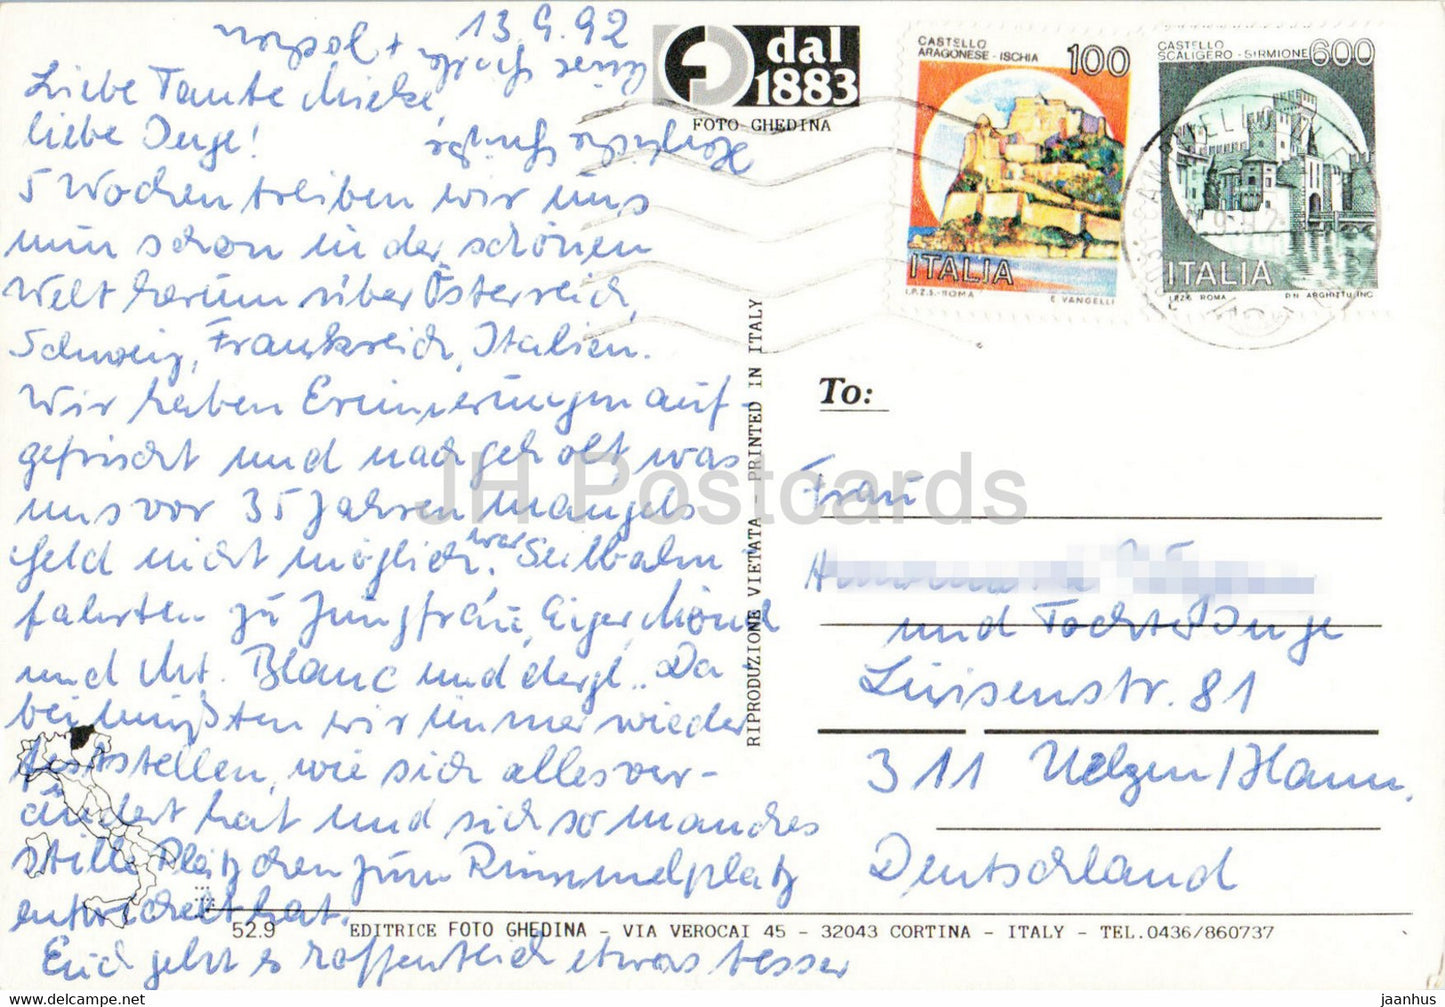 13.9.92
Liebe Tante Mieke,
liebe Inge!
5 Wochen treiben wir uns
nun schon in der schönen
Welt herum über Österreich,
Schweiz, Frankreich, Italien.
Wir haben Erinnerungen auf-
gefrischt und nachgeholt was
uns vor 35 Jahren mangels
Geld nicht möglich war. Seilbahn
fahrten zu Jungfrau, Eiger, Mönch
und Mt. Blanc und dergl.. Da
bei mußten wir immer wieder
feststellen, wie sich alles ver-
ändert hat und sich so manches
stille Plätzchen zum Rummelplatz
entwickelt hat.
Euch geht es hoffentlich etwas besser
Herzliche Grüße
dal
1883
FOTO GHEDINA
CASTELLO
ARAGONESE - ISCHIA
100
ITALIA
I.P.Z.S. - ROMA
E. VANGELLI
CASTELLO
SCALIGERO - SIRMIONE
600
ITALIA
I.P.Z.S. ROMA
RIPRODUZIONE VIETATA - PRINTED IN ITALY
To:
Frau
und Tochter Inge
Luisenstr. 81
311 Uelzen/Hann.
Deutschland
JH Postcards
52.9 EDITRICE FOTO GHEDINA - VIA VEROCAI 45 - 32043 CORTINA - ITALY - TEL.0436/860737
jaanhus
HipPostcard.com